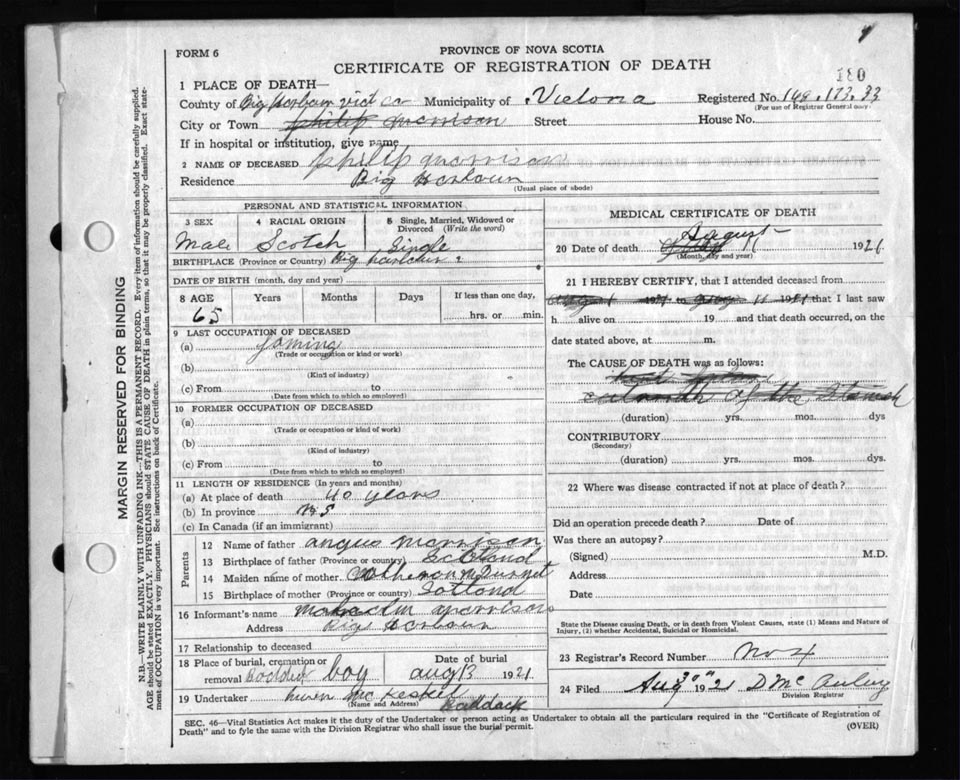 FORM 6
PROVINCE OF NOVA SCOTIA
CERTIFICATE OF REGISTRATION OF DEATH
180
1 PLACE OF DEATH—
County of Big Harbour vict co Municipality of Victoria Registered No. 149.173.33
(For use of Registrar General only)
City or Town philip morrison Street House No.
If in hospital or institution, give name
2 NAME OF DECEASED philip morrison
Residence Big Harbour
(Usual place of abode)
PERSONAL AND STATISTICAL INFORMATION
3 SEX 4 RACIAL ORIGIN 5 Single, Married, Widowed or Divorced (Write the word)
Male Scotch Single
BIRTHPLACE (Province or Country) Big harbour
DATE OF BIRTH (month, day and year)
8 AGE Years Months Days If less than one day,
65 hrs. or min.
9 LAST OCCUPATION OF DECEASED
(a)
(Trade or occupation or kind or work)
(b)
(Kind of industry)
(c) From to
(Date from which to which so employed)
10 FORMER OCCUPATION OF DECEASED
(a)
(Trade or occupation or kind of work)
(b)
(Kind of industry)
(c) From to
(Date from which to which so employed)
11 LENGTH OF RESIDENCE (In years and months)
(a) At place of death 40 years
(b) In province
(c) In Canada (if an immigrant)
Parents
12 Name of father angus morrison
13 Birthplace of father (Province or country) Scotland
14 Maiden name of mother
15 Birthplace of mother (Province or country) Sotland
16 Informant's name Malcolm morrison
Address Big Harbour
17 Relationship to deceased
18 Place of burial, cremation or removal boy Date of burial aug 13 1921
19 Undertaker Baddack
(Name and Address)
MEDICAL CERTIFICATE OF DEATH
20 Date of death August 11 1921
(Month, day and year)
21 I HEREBY CERTIFY, that I attended deceased from
aug 1 1921 to aug 11 1921 that I last saw
h alive on 19 and that death occurred, on the
date stated above, at m.
The CAUSE OF DEATH was as follows:
of the Stomach
(duration) yrs. mos. dys
CONTRIBUTORY
(Secondary)
(duration) yrs. mos. dys.
22 Where was disease contracted if not at place of death?
Did an operation precede death? Date of
Was there an autopsy?
(Signed) M.D.
Address
Date
State the Disease causing Death, or in death from Violent Causes, state (1) Means and Nature of Injury, (2) whether Accidental, Suicidal or Homicidal.
23 Registrar's Record Number No 4
24 Filed Aug 192 D Mc
Division Registrar
SEC. 46—Vital Statistics Act makes it the duty of the Undertaker or person acting as Undertaker to obtain all the particulars required in the "Certificate of Registration of
Death" and to fyle the same with the Division Registrar who shall issue the burial permit. (OVER)
MARGIN RESERVED FOR BINDING
N.B.—WRITE PLAINLY WITH UNFADING INK—THIS IS A PERMANENT RECORD. Every item of information should be carefully supplied.
AGE should be stated EXACTLY. PHYSICIANS should STATE CAUSE OF DEATH in plain terms, so that it may be properly classified. Exact statement of OCCUPATION is very important. See instructions on back of Certificate.